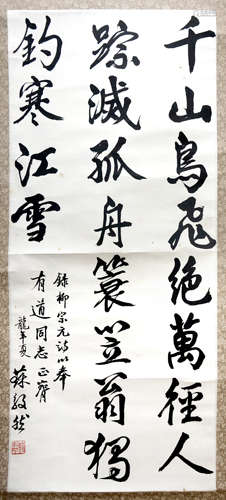 千山鳥飛絕萬徑人
踪滅孤舟簑笠翁獨
釣寒江雪
錄柳宗元詩以奉
有道同志正賞
龍年夏
蘇毅然